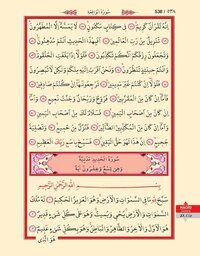 سُورَةُ الْوَاقِعَةِ
538 / ٥٣٨
اِنَّهُ لَقُرْاٰنٌ كَرِيمٌ فِي كِتَابٍ مَكْنُونٍ لَا يَمَسُّهُ اِلَّا الْمُطَهَّرُونَ
تَنْزِيلٌ مِنْ رَبِّ الْعَالَمِينَ اَفَبِهٰذَا الْحَدِيثِ اَنْتُمْ مُدْهِنُونَ
وَتَجْعَلُونَ رِزْقَكُمْ اَنَّكُمْ تُكَذِّبُونَ فَلَوْلَا اِذَا بَلَغَتِ الْحُلْقُومَ
وَاَنْتُمْ حِينَئِذٍ تَنْظُرُونَ وَنَحْنُ اَقْرَبُ اِلَيْهِ مِنْكُمْ وَلٰكِنْ لَا تُبْصِرُونَ
فَلَوْلَا اِنْ كُنْتُمْ غَيْرَ مَدِينِينَ تَرْجِعُونَهَا اِنْ كُنْتُمْ صَادِقِينَ
فَاَمَّا اِنْ كَانَ مِنَ الْمُقَرَّبِينَ فَرَوْحٌ وَرَيْحَانٌ وَجَنَّتُ نَعِيمٍ وَاَمَّا
اِنْ كَانَ مِنْ اَصْحَابِ الْيَمِينِ فَسَلَامٌ لَكَ مِنْ اَصْحَابِ الْيَمِينِ
وَاَمَّا اِنْ كَانَ مِنَ الْمُكَذِّبِينَ الضَّالِّينَ فَنُزُلٌ مِنْ حَمِيمٍ وَتَصْلِيَةُ
جَحِيمٍ اِنَّ هٰذَا لَهُوَ حَقُّ الْيَقِينِ فَسَبِّحْ بِاسْمِ رَبِّكَ الْعَظِيمِ
سُورَةُ الْحَدِيدِ مَدَنِيَّةٌ
وَهِيَ تِسْعٌ وَعِشْرُونَ اٰيَةً
بِسْمِ اللّٰهِ الرَّحْمٰنِ الرَّحِيمِ
سَبَّحَ لِلّٰهِ مَا فِي السَّمٰوَاتِ وَالْاَرْضِ وَهُوَ الْعَزِيزُ الْحَكِيمُ لَهُ مُلْكُ
السَّمٰوَاتِ وَالْاَرْضِ يُحْيِي وَيُمِيتُ وَهُوَ عَلٰى كُلِّ شَيْءٍ قَدِيرٌ
هُوَ الْاَوَّلُ وَالْاٰخِرُ وَالظَّاهِرُ وَالْبَاطِنُ وَهُوَ بِكُلِّ شَيْءٍ عَلِيمٌ
هُوَ الَّذِي